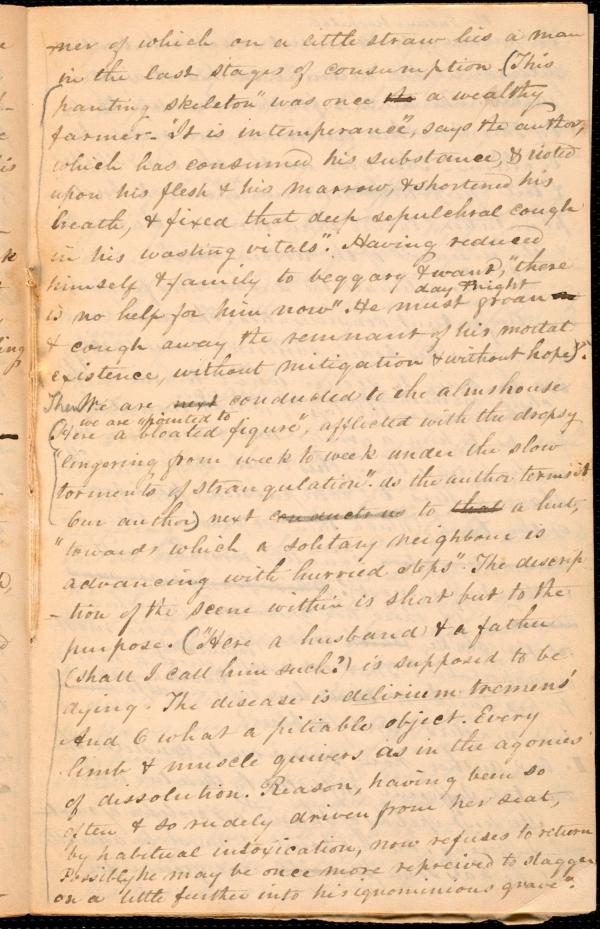 -ner of which on a little straw lies a man
in the last stages of consumption. (This
panting skeleton" was once the a wealthy
farmer - "It is intemperance", says the author,
which has consumed his substance, & rioted
upon his flesh & his marrow, & shortened his
breath, & fixed that deep sepulchral cough
in his wasting vitals". Having reduced
himself & family to beggary & want, "there
is no help for him now". He must groan
day & night
& cough away the remnant of his mortal
existence, without mitigation & without hope)".
Then We are next conducted to the almshouse
we are "pointed to
(Here a bloated figure", afflicted with the dropsy
"lingering from week to week under the slow
torments of strangulation". as the author terms it
Our author) next conducts us to that a hut,
"towards which a solitary neighbour is
advancing with hurried steps". The descrip
-tion of the scene within is short but to the
purpose. ("Here a husband & a father
(shall I call him such?) is supposed to be
dying. The disease is delirium tremens'
And O what a pitiable object. Every
limb & muscle quivers as in the agonies
of dissolution. Reason, having been so
often & so rudely driven from her seat,
by habitual intoxication, now refuses to return
Possibly he may be once more repreived to stagger
on a little further into his ignominious grave".